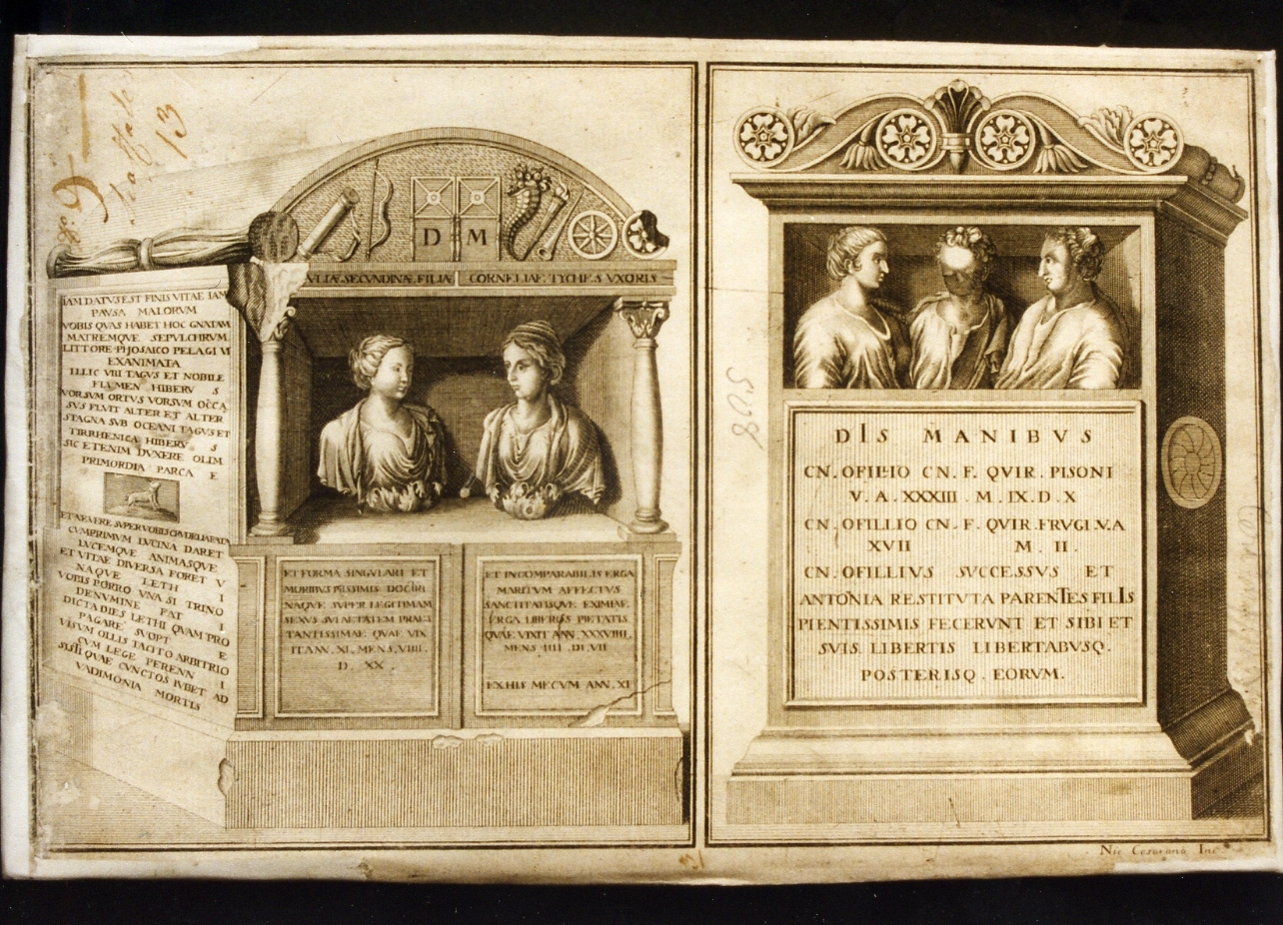 13
D M
VLIAE.SECVNDINAE.FILIAE CORNELIAE.TYCHES VXORIS
IAM DATVS EST FINIS VITAE IAM
PAVSA MALORVM
VOBIS QVAS HABET HOC GNATAM
MATREMQVE SEPVLCHRVM
LITTORE PHOSAICO PELAGI VI
EXANIMATA
ILLIC VIII TAGVS ET NOBILE
FLVMEN HIBERV S
VORSVM ORTVS VORSVM OCCA
SVS FLVIT ALTER ET ALTER
STAGNA SVB OCEANI TAGVS ET
TIRRHENICA HIBERV S
SIC ETENIM DVXERE OLIM
PRIMORDIA PARCA E
ET NEVERE SVPER VOBIS
CVMPRIMVM LVCINA DARET
LVCEMQVE ANIMASQVE
ET VITAE DIVERSA FORET V
NAQVE LETH I
VOBIS PORRO VNA SI TRINO
DENVMINE FAT I
DICTA DIES LETHI QVAM PRO
PAGARE SVOPT E
VISVM OLLIS TACITO ARBITRIO
CVM LEGE PERENN I
SISTI QVAE CVNCTOS IVBET AD
VADIMONIA MORTIS
ET FORMA SINGVLARI ET
MORIBVS PIISSIMIS DOCTRI
NAQVE SVPER LEGITIMAM
SEXVS SVI AETATEM PRAES
TANTISSIMAE QVAE VIX
IT ANN. XI. MENS. VIIII.
D. XX.
ET INCOMPARABILIS ERGA
MARITVM AFFECTVS
SANCTITATISQVE EXIMIAE
ERGA LIBEROS PIETATIS
QVAE VIXIT ANN. XXXVIIII.
MENS IIII DI VII
EX HIS MECVM ANN. XI
DIS MANIBVS
CN. OFILLIO CN. F. QVIR. PISONI
V. A. XXXIII. M. IX. D. X
CN. OFILLIO CN. F. QVIR. FRVGI V. A
XVII M. II.
CN. OFILLIVS SVCCESSVS ET
ANTONIA RESTITVTA PARENTES FILIS
PIENTISSIMIS FECERVNT ET SIBI ET
SVIS. LIBERTIS LIBERTABVSQ.
POSTERISQ. EORVM.
508
Nic Cesarano Inc
31